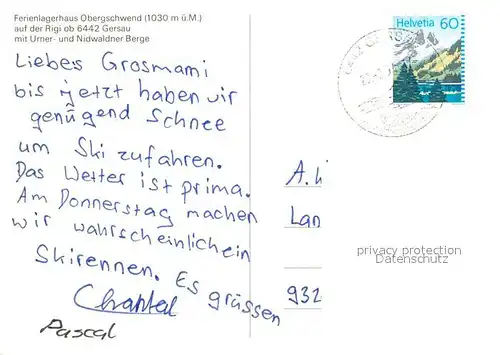 Ferienlagerhaus Obergschwend (1030 m ü.M.)
auf der Rigi ob 6442 Gersau
mit Urner- und Nidwaldner Berge
Liebes Grosmami
bis jetzt haben wir
genügend Schnee
um Ski zufahren.
Das Wetter ist prima.
Am Donnerstag machen
wir wahrscheinlich ein
Skirennen. Es grüssen
Chantal
Pascal
Helvetia 60
A.
Lan
932
privacy protection
Datenschutz